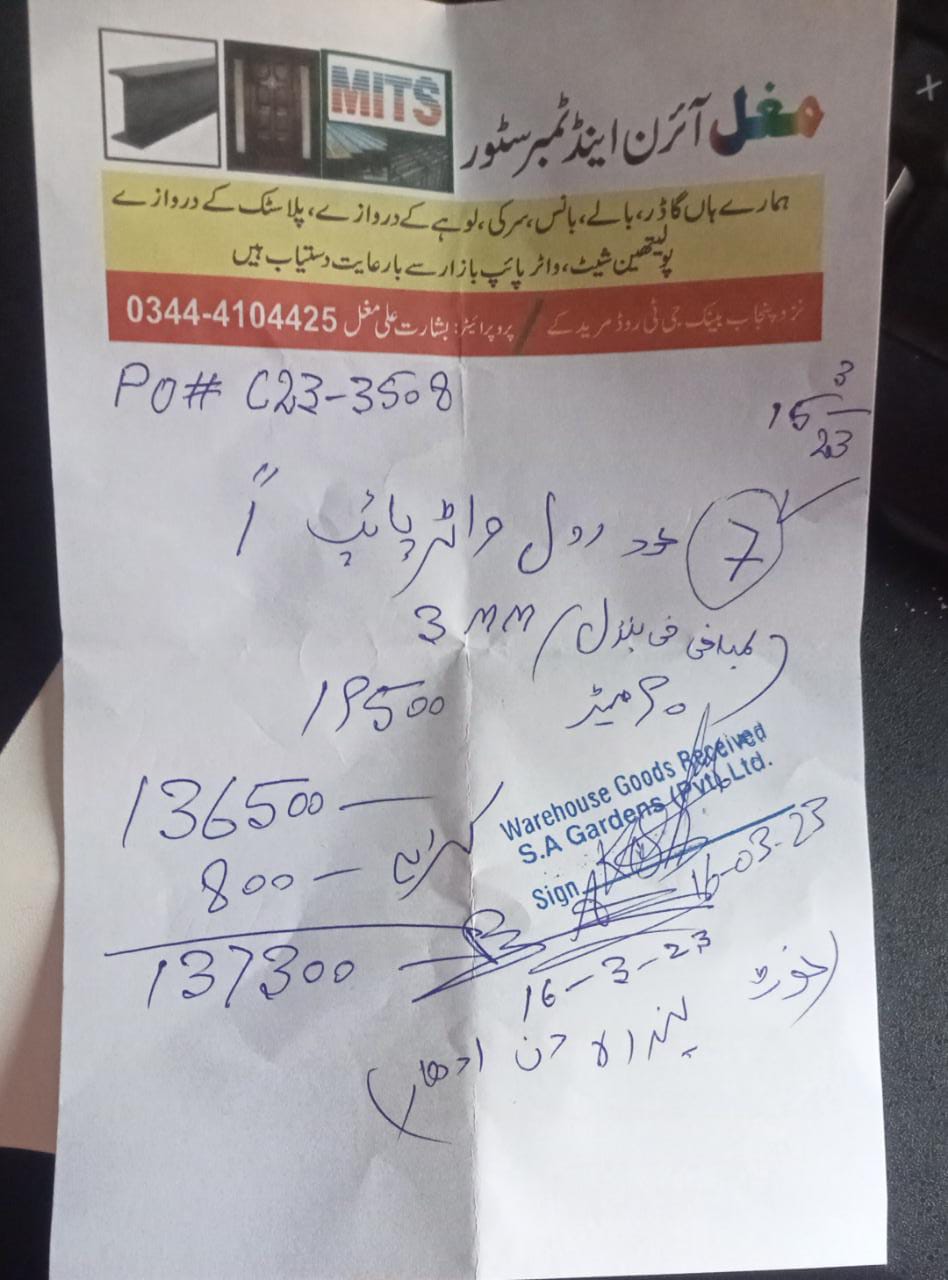 MITS
مغل آئرن اینڈ ٹمبر سٹور
ہمارے ہاں گاڈر، بالے، بانس، سرکی، لوہے کے دروازے، پلاسٹک کے دروازے
پولیتھین شیٹ، واٹر پائپ بازار سے بارعایت دستیاب ہیں
نزد پنجاب بینک جی ٹی روڈ مریدکے / پروپرائیٹر: بشارت علی مغل 0344-4104425
PO# C23-3508
15/3/23
7 عدد رول واٹر پائپ 1"
(لمبائی فی بنڈل 3 MM
میٹر)
19500
136500 —
800 — کرایہ
137300 —
Warehouse Goods Received
S.A Gardens (Pvt) Ltd.
Sign
16-03-23
16-3-23
(نوٹ پندرہ دن ادھار)